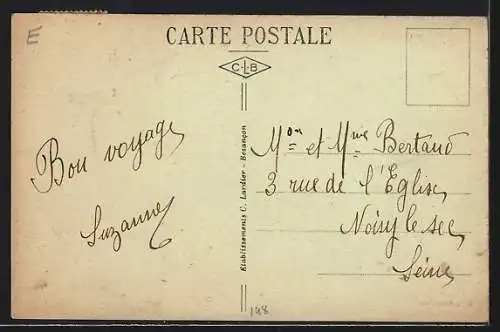 E
CARTE POSTALE
CLB
Bon voyage
Suzanne
Etablissements C. Lardier - Besançon
Mon et Mme Bertaud
3 rue de l'Eglise
Noisy le sec
Seine
148